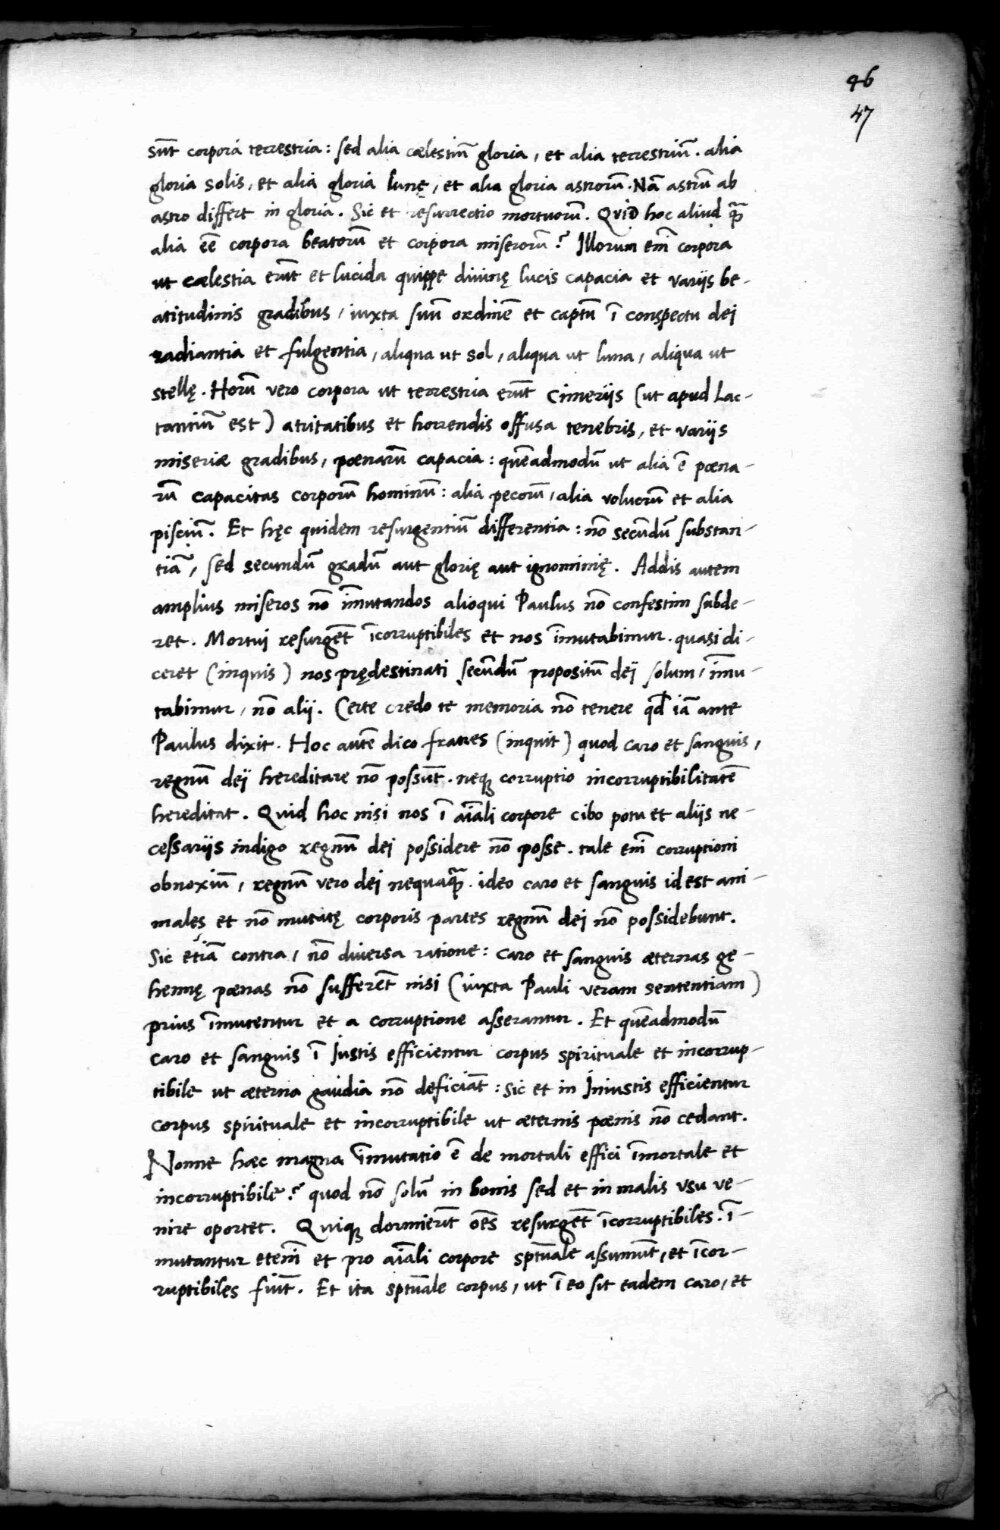 46
47
sūt corpora terrestria: sed alia cœlestiū gloria, et alia terrestriū. alia
gloria solis, et alia gloria lunę, et alia gloria astrorū. Nā astrū ab
astro differt in gloria. Sic et resurrectio mortuorū. Quid hoc aliud q̃
alia eē corpora beatorū et corpora miserorū? Illorum em̄ corpora
ut cœlestia erūt et lucida quippe divinę lucis capacia et variis be-
atitudinis gradibus, iuxta suū ordinē et captū ī conspectu dei
radiantia et fulgentia, aliqua ut sol, aliqua ut luna, aliqua ut
stellę. Horū vero corpora ut terrestria erūt Cimeriis (ut apud Lac-
tantiū est) atritatibus et horrendis offusa tenebris, et variis
miseriæ gradibus, pœnarū capacia: quēadmodū ut alia ē pœna-
rū capacitas corporū hominū: alia pecorū, alia volucrū et alia
pisciū. Et hęc quidem resurgentiū differentia: nō secūdū substan-
tiā, sed secundū gradū aut glorię aut ignominię. Addis autem
amplius miseros nō īmutandos alioqui Paulus nō confestim subde-
ret. Mortui resurgēt īcorruptibiles et nos īmutabimur. quasi di-
ceret (inquis) nos prędestinati secūdū propositū dei solum, īmu-
tabimur, nō alij. Certe credo te memoria nō tenere qd̄ iā ante
Paulus dixit. Hoc autē dico fratres (inquit) quod caro et sanguis,
regnū dei hereditare nō possūt. neq; corruptio incorruptibilitatē
hereditat. Quid hoc nisi nos ī aīali corpore cibo potu et aliis ne-
cessariis indigo regnū dei possidere nō posse. tale em̄ corruptioni
obnoxiū, regnū vero dei nequaq̃. ideo caro et sanguis id est ani-
males et nō mutatę corporis partes regnū dei nō possidebunt.
Sic etiā contra, nō diversa ratione: caro et sanguis æternas ge-
hennę pœnas nō sufferēt nisi (iuxta Pauli veram sententiam)
prius īmutentur et a corruptione asserantur. Et quēadmodū
caro et sanguis ī Justis efficientur corpus spirituale et incorrup-
tibile ut æterna gaudia nō deficiāt: Sic et in Iniustis efficientur
corpus spirituale et incorruptibile ut æternis pœnis nō cedant.
Nonne hæc magna īmutatio ē de mortali effici īmortale et
incorruptibile? quod nō solū in bonis sed et in malis usu ve-
nire oportet. Quiq; dormierūt oēs resurgēt īcorruptibiles. ī-
mutantur etem̄ et pro aīali corpore spūale assumūt, et īcor-
ruptibiles fiūt. Et ita spūale corpus, ut ī eo sit eadem caro, et